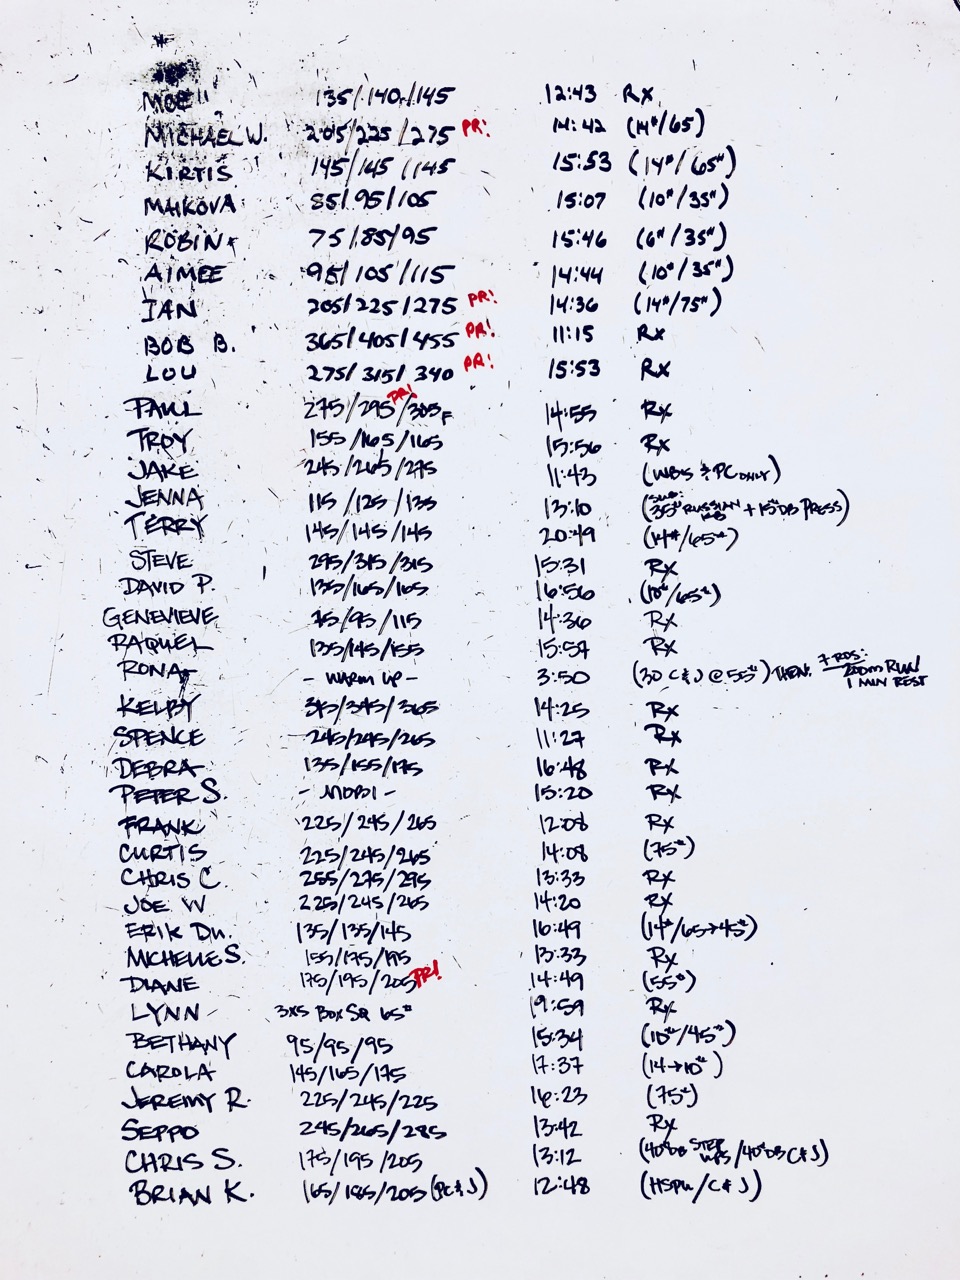 MOE 135/140/145 12:43 Rx
MICHAEL W. 205/225/275 PR! 14:42 (14#/65)
KIRTIS 145/145/145 15:53 (14#/65#)
MAIKOVA 85/95/105 15:07 (10#/35#)
ROBIN 75/85/95 15:46 (6#/35#)
AIMEE 95/105/115 14:44 (10#/35#)
IAN 205/225/275 PR! 14:36 (14#/75#)
BOB B. 365/405/455 PR! 11:15 Rx
LOU 275/315/340 PR! 15:53 Rx
PAUL 275/295 PR!/305F 14:55 Rx
TROY 155/165/165 15:56 Rx
JAKE 245/265/275 11:43 (WBS & PC ONLY)
JENNA 115/125/135 13:10 (SUB: 35# RUSSIAN KB + 15# DB PRESS)
TERRY 145/145/145 20:49 (14#/65#)
STEVE 295/315/315 15:31 Rx
DAVID P. 135/165/165 16:56 (10#/65#)
GENEVIEVE 75/95/115 14:36 Rx
RAQUEL 135/145/155 15:59 Rx
RONA - WARM UP - 3:50 (30 C&J @ 55#) THEN: 7 RDS: 200m RUN/ 1 MIN REST
KELBY 345/345/365 14:25 Rx
SPENCE 245/245/265 11:27 Rx
DEBRA 135/155/175 16:48 Rx
PETER S. - MOBI - 15:20 Rx
FRANK 225/245/265 12:08 Rx
CURTIS 225/245/265 14:08 (75#)
CHRIS C. 255/275/295 13:33 Rx
JOE W 225/245/265 14:20 Rx
ERIK DU. 135/135/145 16:49 (14#/65→45#)
MICHELLE S. 155/175/195 13:33 Rx
DIANE 175/195/205 PR! 14:49 (55#)
LYNN 3x5 BOX SQ 65# 19:59 Rx
BETHANY 95/95/95 15:34 (10#/45#)
CAROLA 145/165/175 17:37 (14→10#)
JEREMY R. 225/245/225 16:23 (75#)
SEPPO 245/265/285 13:42 Rx
CHRIS S. 175/195/205 13:12 (40#DB STEP UPS/40#DB C&J)
BRIAN K. 165/185/205 (PC&J) 12:48 (HSPU/C&J)